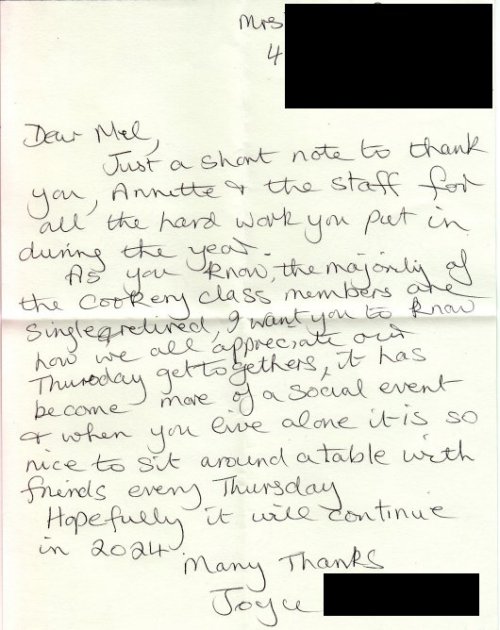 Mrs
4
Dear Mel,
Just a short note to thank
you, Annette & the staff for
all the hard work you put in
during the year.
As you know, the majority of
the Cookery class members are
single & retired, I want you to know
how we all appreciate our
Thursday get togethers, it has
become more of a social event
& when you live alone it is so
nice to sit around a table with
friends every Thursday
Hopefully it will continue
in 2024.
Many Thanks
Joyce